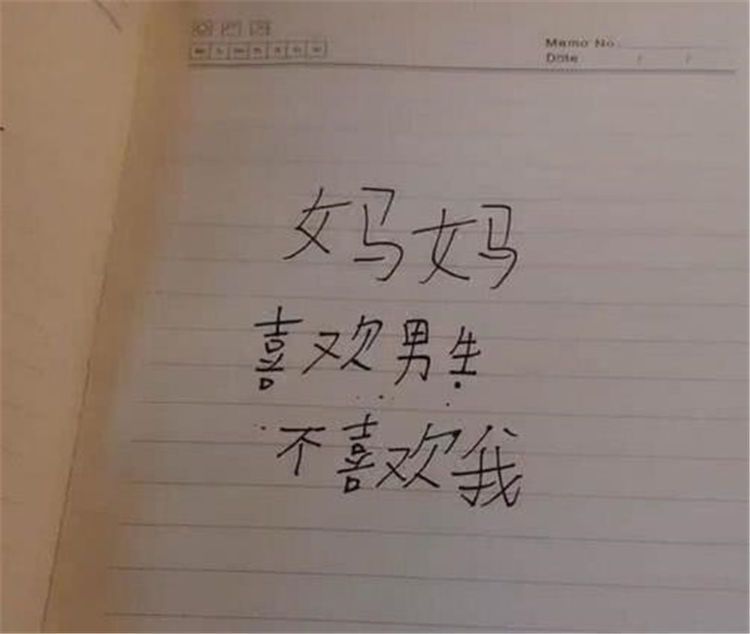 Memo No.
Date / /
妈妈
喜欢男生
不喜欢我